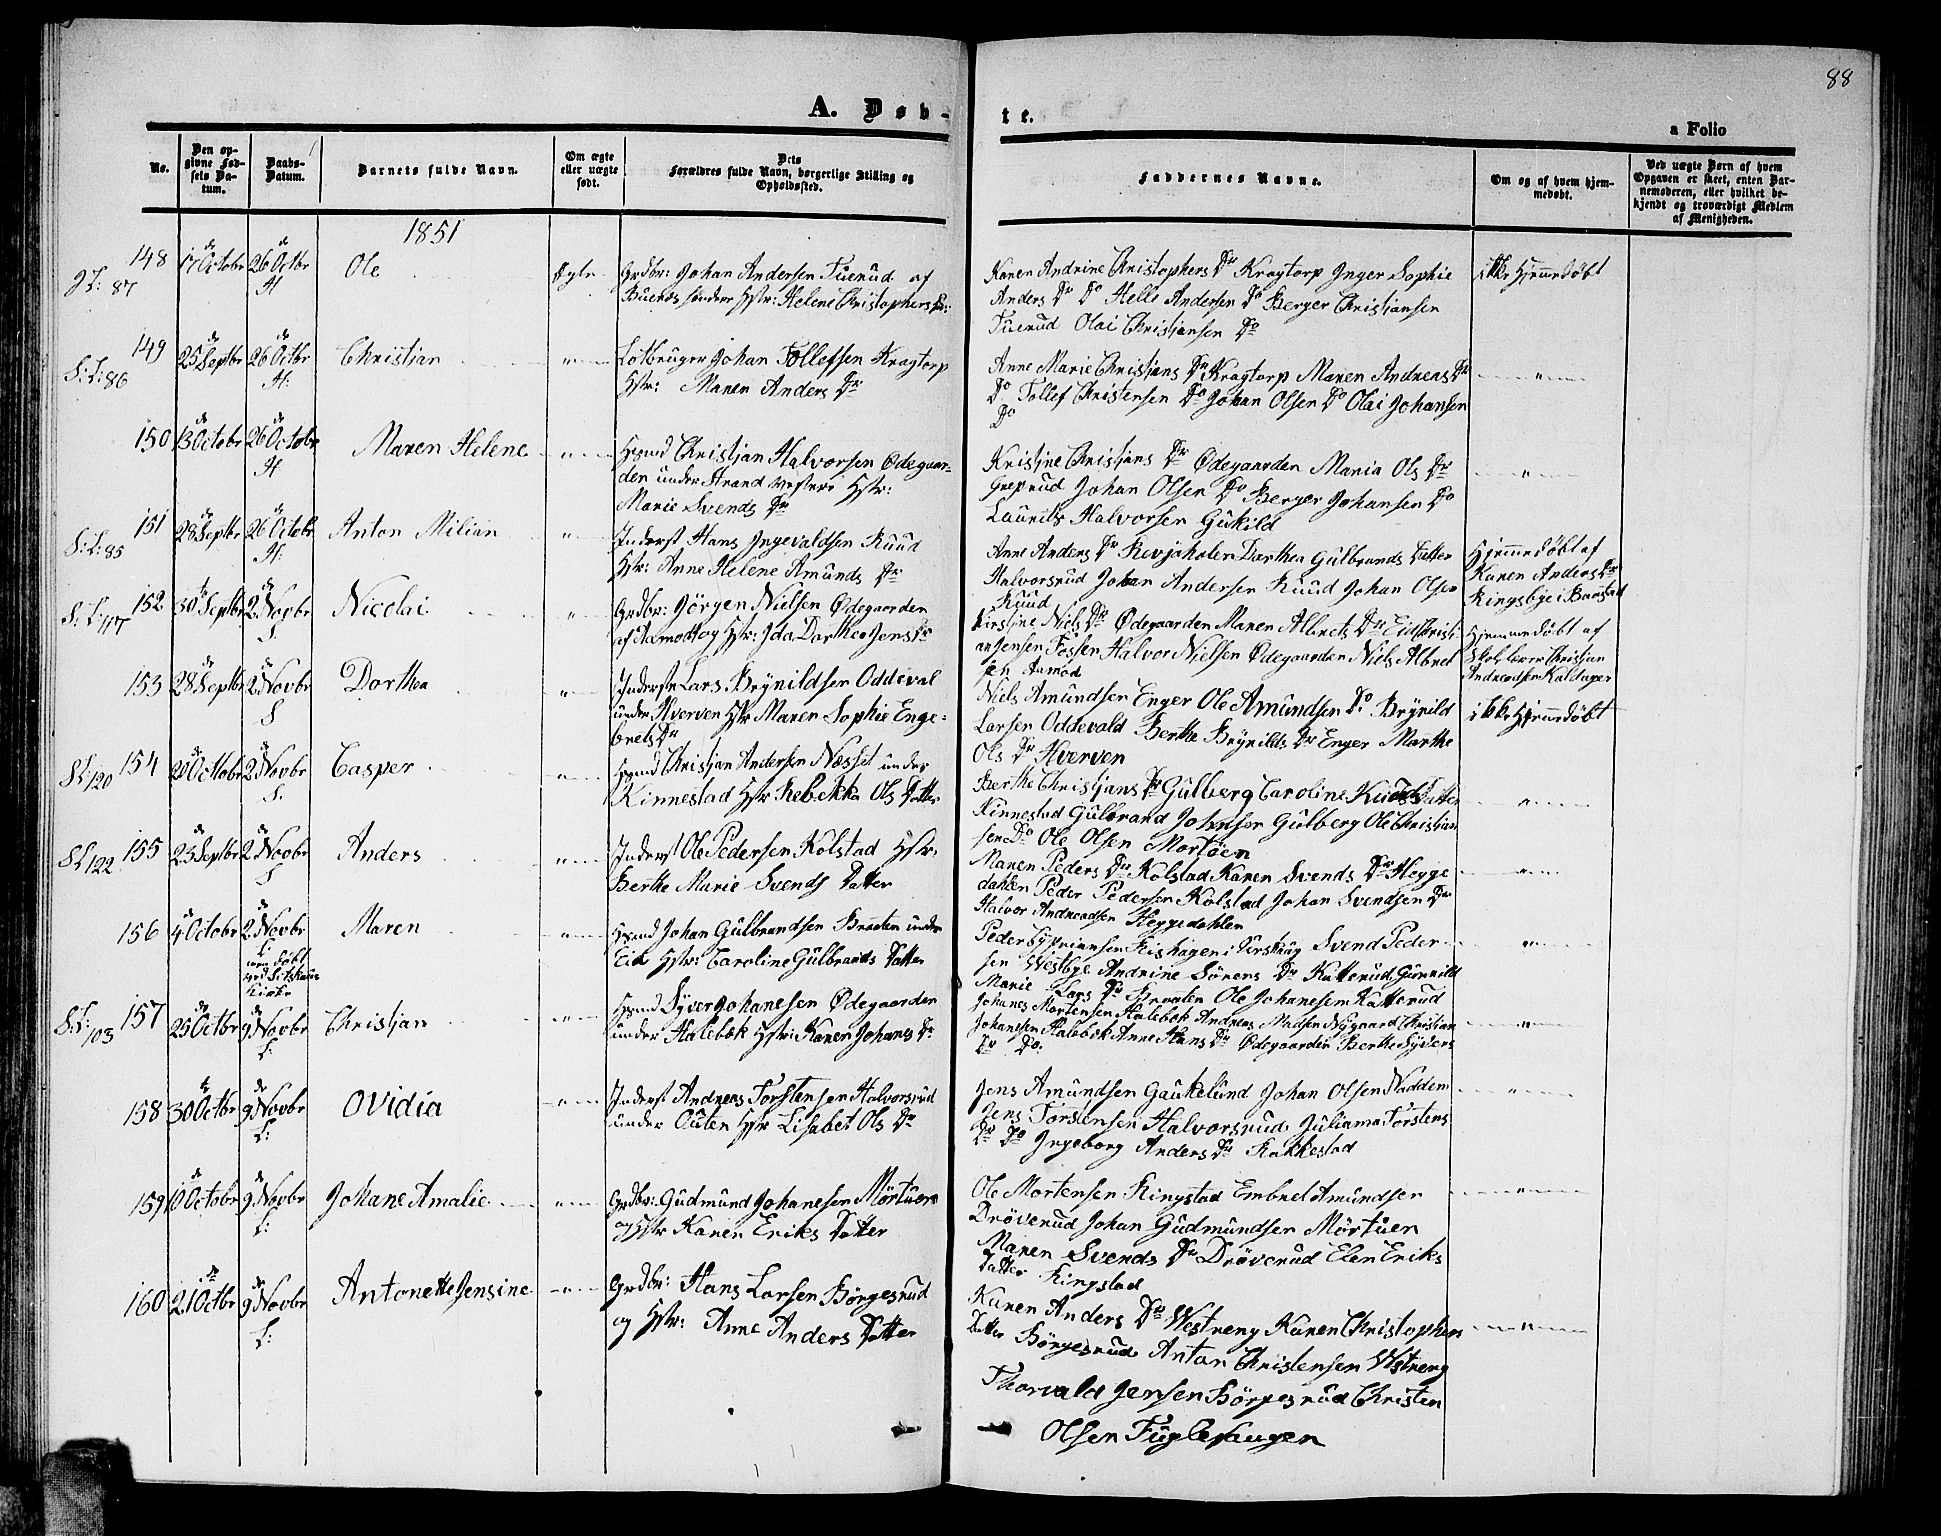 88
A. Døb-
te.
a Folio
No.
Den op-
givne Fød-
sels Da-
tum.
Daabs-
Datum.
Barnets fulde Navn.
Om ægte
eller uægte
født.
Dets
Forældres fulde Navn, borgerlige Stilling og
Opholdssted.
Faddernes Navne.
Om og af hvem hjem-
medøbt.
Ved uægte Børn af hvem
Opgaven er skeet, enten Bar-
nemoderen, eller hvilket be-
kjendt og troværdigt Medlem
af Menigheden.
1851
148 17 Octobr 26 Octbr Ole Grdbr: Johan Andersen Tuerud af
87 H Buernes søndere Hstr: Helene Christophers Dr:
Karen Andrine Christophers Dr Kragtorp Inger Sophie ikke Hjemmedøbt
Anders Dr Do Helle Andersen Do Berger Christjansen
Tuerud Olai Christjansen Do
149 25 Septbr 26 Octbr Christian " Lotbruger Johan Tollefsen Kragtorp
S:L: 86 H: Hstr: Maren Anders Dr
Anne Marie Christjans Dr Kragtorp Maren Andreas Dr "
Do Tollef Christensen Do Johan Olsen Do Olai Johansen
Do
150 13 Octobr 26 Octobr Maren Helene " Hsmd Christjan Halvorsen Ødegaar-
H den under Strand vestere Hstr:
Marie Svends Dr
Kristine Christjans Dr Ødegaarden Maria Ols Dr "
Greprud Johan Olsen Do Berger Johansen Do
Laurits Halvorsen Gukild
151 28 Septbr 26 Octobr Anton Milian " Inderst Hans Ingevaldsen Ruud
S:L: 85 H: Hstr: Anne Helene Amunds Dr
Anne Anders Dr Revjaholen Darthea Gulbrands Datter Hjemmedøbt af
Halvorsrud Johan Andersen Ruud Johan Olsen Karen Anders Dr
Ruud Ringsbye i Baastad
152 30 Septbr 2 Novbr Nicolai " Grdbr: Jörgen Nielsen Ødegaarden
S:L: 117 S. af Aamodt og Hstr: Ida Dorthea Jens Dr
Kirstine Niels Dr Ødegaarden Maren Albrets Dr Eid Christi- Hjemmedøbt af
an Jensen Fossen Halvor Nielsen Ødegaarden Niels Albret Skolelærer Christjan
sen Aamod Andreasen Kaldager
153 28 Septbr 2 Novbr Dorthea " Inderste Lars Brynildsen Oddeval
S under Hverven Hstr Maren Sophie Enge-
brets Dr
Niels Amundsen Enger Ole Amundsen Do Brynild ikke Hjemmedøbt
Larsen Oddevald Berthe Brynilds Dr Enger Marthe
Ols Dr Hverven
154 20 Octobr 2 Novbr Casper " Hsmd Christjan Andersen Nesset under
SL 120 S. Kinnestad Hstr Rebekka Ols Datter
Berthe Christjans Dr Gulberg Caroline Knuds Datter "
Kinnestad Gulbrand Johnsen Gulberg Ole Christjan
sen Do Ole Olsen Mortöen
155 23 Septbr 2 Novbr Anders " Inderst Ole Pedersen Kolstad Hstr:
SL 122 S Berthe Marie Svends Datter
Maren Peders Dr Kolstad Karen Svends Dr Hegge "
dahlen Peder Pedersen Kolstad Johan Svendsen Do
Halvor Andreasen Heggedahlen
156 4 Octobr 2 Novbr Maren " Hsmd Johan Gulbrandsen Braaten under
Eid Hstr: Caroline Gulbrands Datter
Peder Cyprianser Rishagen i Kirskoug Svend Peder "
sen Westbye Andrine Sörens Dr Katterud Gunnild
Marie Lars Dr Braaten Ole Johanesen Katterud
157 25 Octbr 9 Novbr Christjan " Hsmd Syver Johanesen Ødegaarden
S:L: 103 L: under Halebæk Hstr: Karen Johanes Dr
Johanes Mortensen Halebök Andreas Madsen Nygaard Christian "
Johansen Halebök Anne Hans Dr Ødegaarden Berthe Syvers
Dr Do.
158 30 Octbr 9 Novbr Ovidia " Inderst Andreas Torstensen Halvorsrud
L: under Outen Hstr Lisabet Ols Dr
Jens Amundsen Gaukelund Johan Olsen Nadden "
Jens Torstensen Halvorsrud Juliana Torstens
Dr Do Ingeborg Anders Dr Rakkestad
159 10 Octobr 9 Novbr Johane Amalie " Grdbr: Gudmund Johanesen Mörtuen
L: og Hstr Karen Eriks Datter
Ole Mortensen Ringstad Embret Amundsen "
Dröverud Johan Gudmundsen Mörtuen
Maren Svends Dr Dröverud Elen Eriks
Datter Ringstad
160 21 Octbr 9 Novbr Antonette Jensine " Grdbr: Hans Larsen Börgesrud
L: og Hstr: Anne Anders Datter
Karen Anders Dr Westreng Karen Christophers "
Datter Börgesrud Anton Christensen Westreng
Thorvald Jensen Börgesrud Christen
Olsen Fuglehaugen